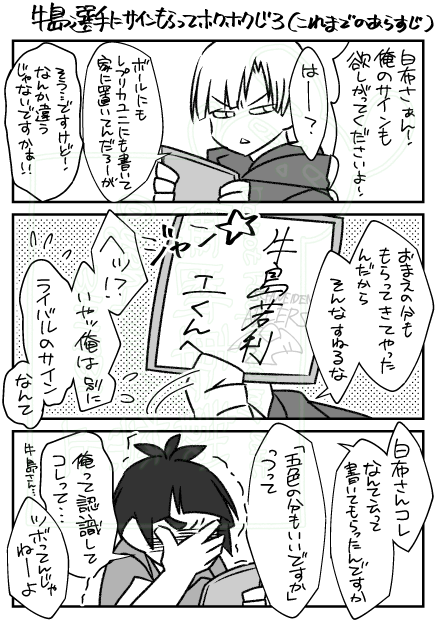 牛島選手にサインもらってホクホクじろ(これまでのあらすじ)
白布さぁん!
俺のサインも
欲しがってくださいよ~
はー?
ボールにも
レプリカユニにも書いて
家に置いてんだろーが
そう…ですけど!
なんか違う
じゃないですかぁ!!
おまえの分も
もらってきてやった
んだから
そんなすねるな
ジャン
牛島若利
工くんへ
ヘッ!?
いやッ俺は別に
ライバルのサイン
なんて
白布さんコレ
なんて言って
書いてもらったんですか
「五色の分もいいですか」
つって
俺って認識して
コレって…
牛島さん…
ツボってんじゃ
ねーよ